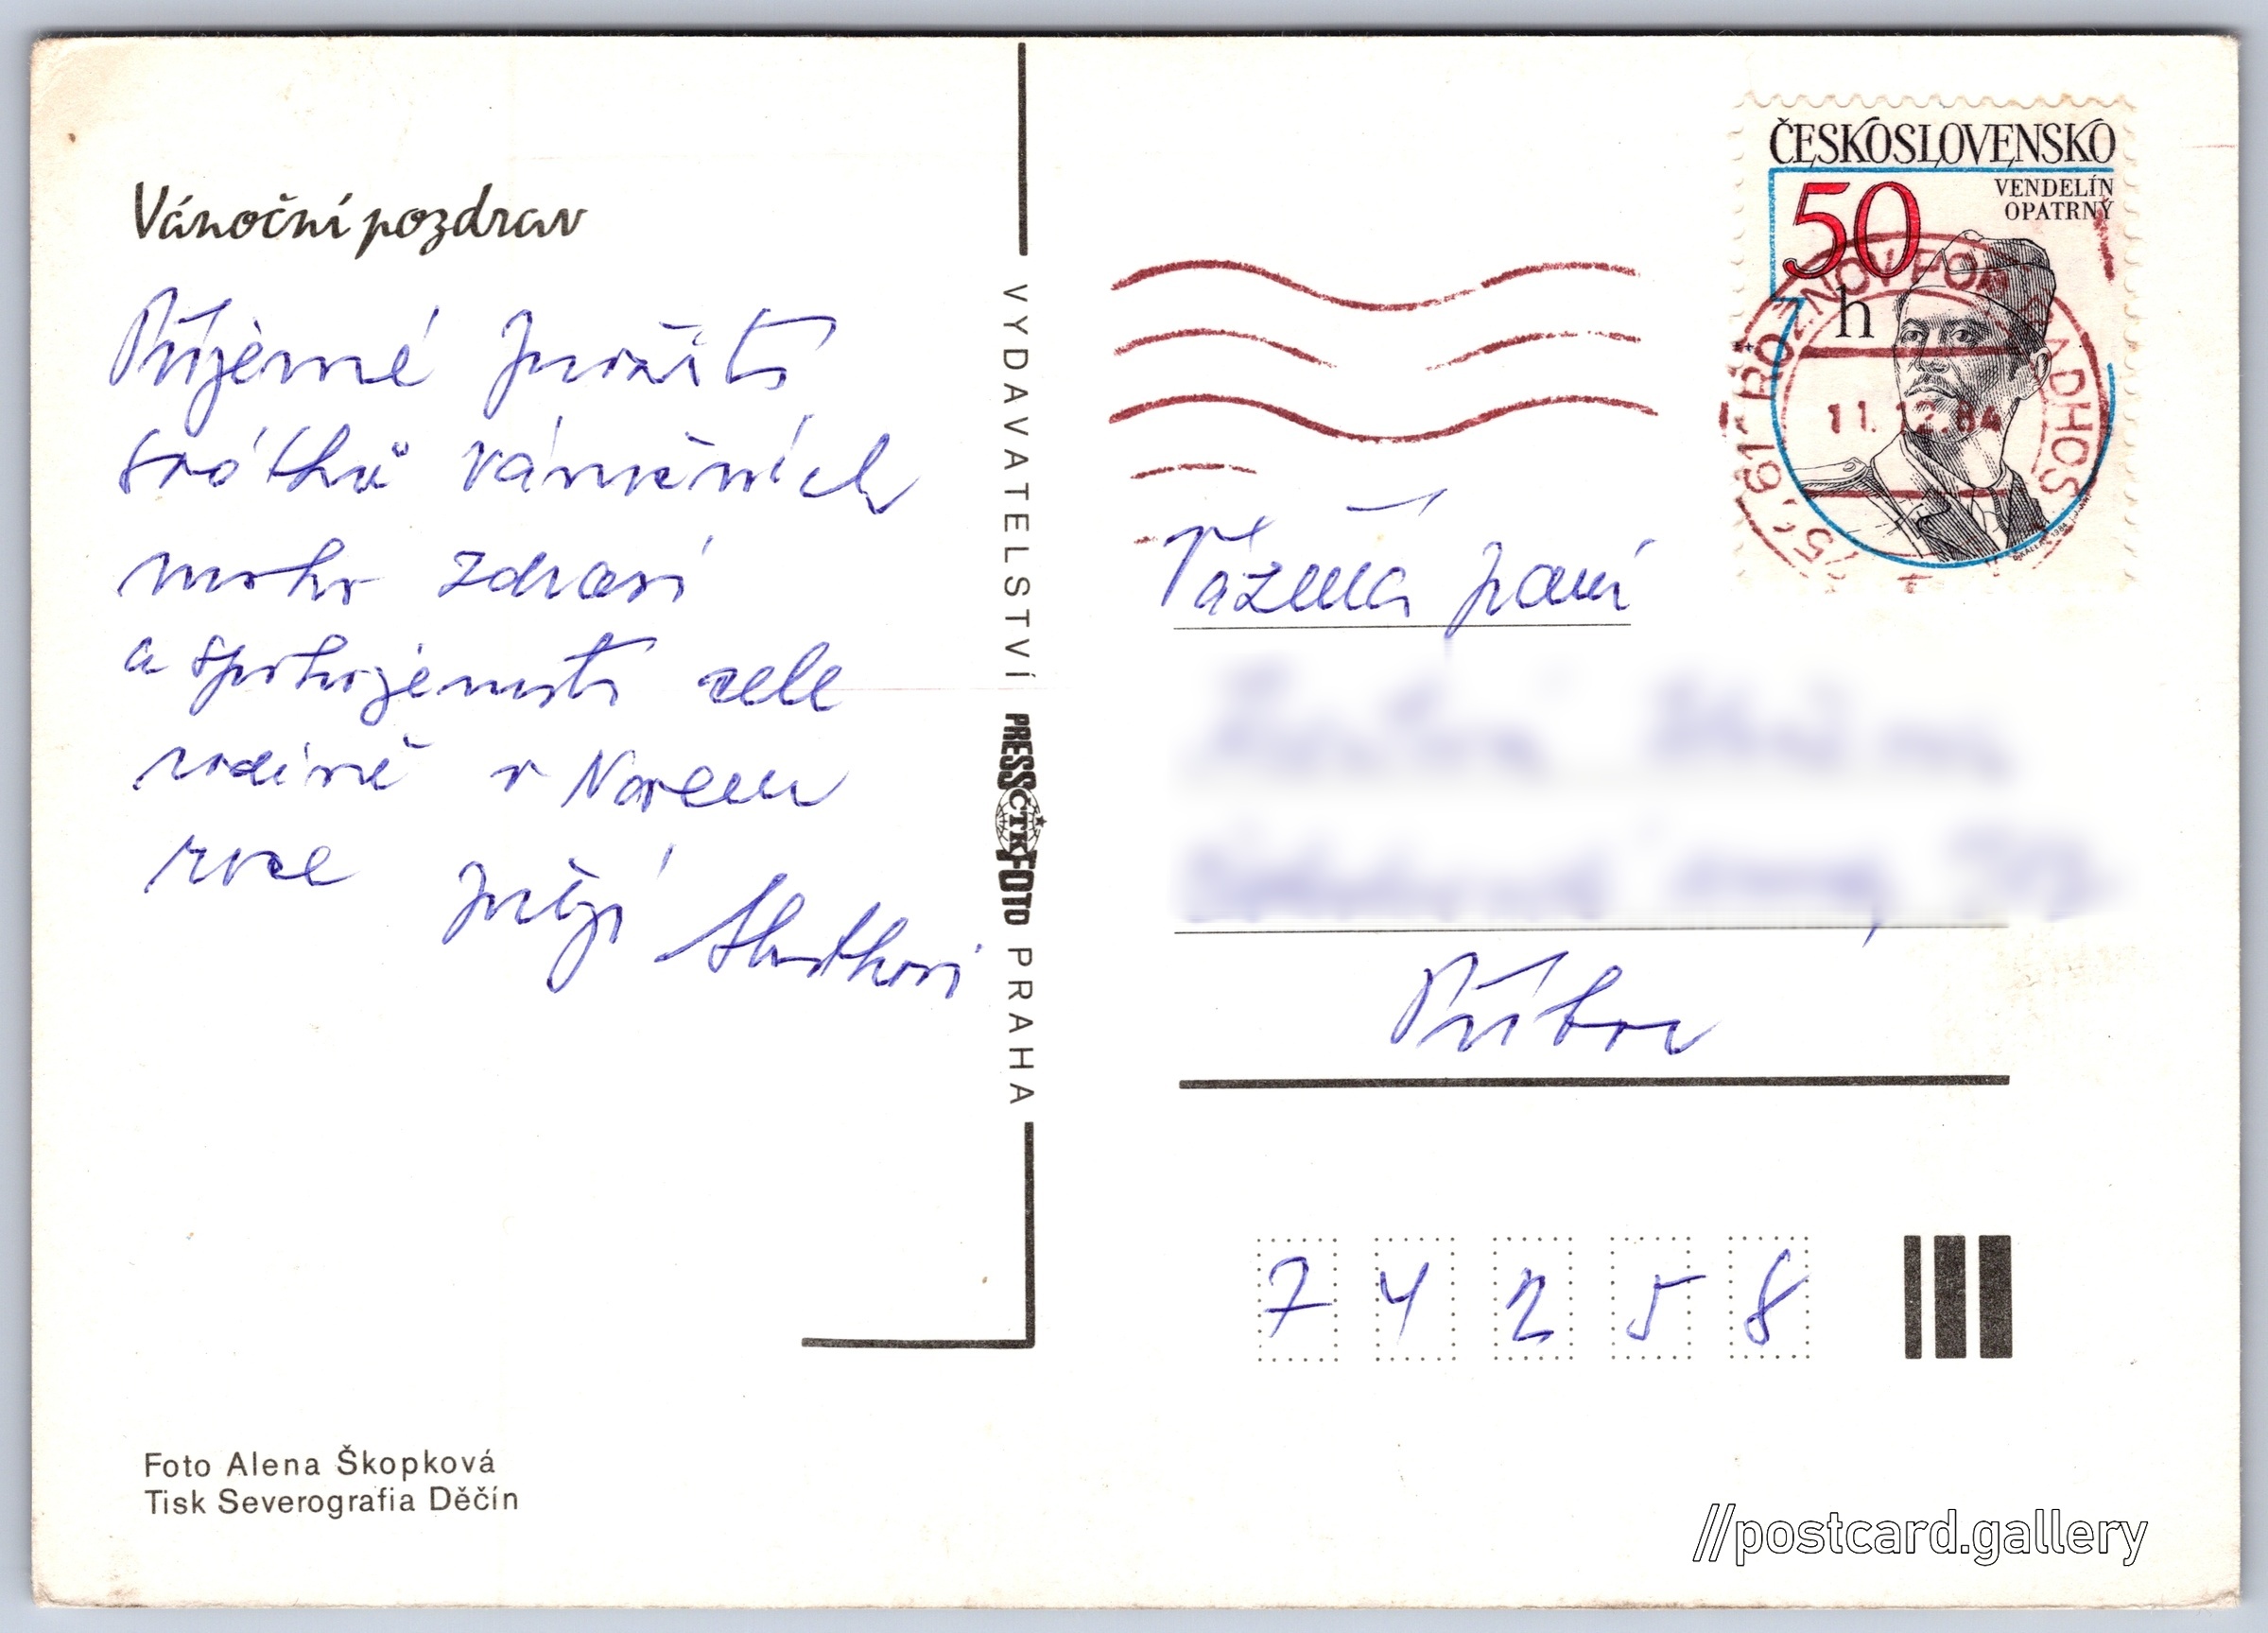 Vánoční pozdrav
Příjemné prožití
svátků vánočních
moho zdraví
a spokojenosti cele
rodině v Novem
roce přejí
VYDAVATELSTVÍ PRESSFOTO PRAHA
ČTK
ČESKOSLOVENSKO
50 h
VENDELÍN
OPATRNÝ
756 61 ROŽNOV POD RADHOŠ
11.12.84
Vážená paní
Příbor
74258
Foto Alena Škopková
Tisk Severografia Děčín
//postcard.gallery